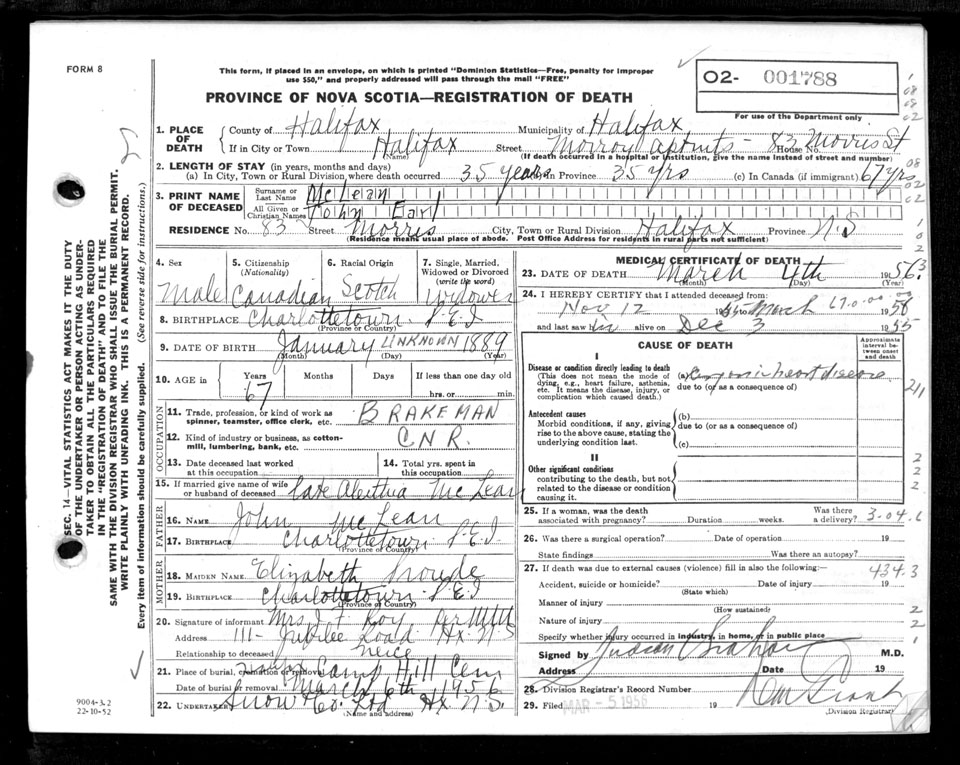 FORM 8
This form, if placed in an envelope, on which is printed "Dominion Statistics—Free, penalty for improper
use $50," and properly addressed will pass through the mail "FREE"
O2- 001788
For use of the Department only
PROVINCE OF NOVA SCOTIA—REGISTRATION OF DEATH
1. PLACE OF DEATH
County of Halifax Municipality of Halifax
If in City or Town Halifax (Name) Street 83 Morris St House No.
(If death occurred in a hospital or institution, give the name instead of street and number)
2. LENGTH OF STAY (in years, months and days)
(a) In City, Town or Rural Division where death occurred 35 years (b) In Province 35 yrs (c) In Canada (if immigrant) 67 yrs
3. PRINT NAME OF DECEASED
Surname or Last Name McLean
All Given or Christian Names John Earl
RESIDENCE No. 83 Street Morris City, Town or Rural Division Halifax Province N.S
(Residence means usual place of abode. Post Office Address for residents in rural parts not sufficient)
4. Sex Male
5. Citizenship (Nationality) Canadian
6. Racial Origin Scotch
7. Single, Married, Widowed or Divorced (write the word) Widower
8. BIRTHPLACE Charlottetown P.E.I
(Province or Country)
9. DATE OF BIRTH January UNKNOWN 1889
(Month) (Day) (Year)
10. AGE in Years 67 Months Days If less than one day old
hrs. or min.
OCCUPATION
11. Trade, profession, or kind of work as
spinner, teamster, office clerk, etc. BRAKEMAN
12. Kind of industry or business, as cotton-
mill, lumbering, bank, etc. C.N.R.
13. Date deceased last worked
at this occupation
14. Total yrs. spent in
this occupation
15. If married give name of wife
or husband of deceased Mc Lean
FATHER
16. NAME John Mc Lean
17. BIRTHPLACE Charlottetown P.E.I
(Province or Country)
MOTHER
18. MAIDEN NAME Elizabeth
19. BIRTHPLACE Charlottetown P.E.I
(Province or Country)
20. Signature of informant Mrs J.
Address 111- Jubilee Road Hx. N.S
Relationship to deceased neice
21. Place of burial, cremation or removal Halifax Camp Hill Cem
Date of burial or removal March 6th 1956
22. UNDERTAKER Snow Co. Ltd Hx. N.S.
(Name and address)
MEDICAL CERTIFICATE OF DEATH
23. DATE OF DEATH March 4th 1956
(Month) (Day) (Year)
24. I HEREBY CERTIFY that I attended deceased from
Nov 12 1955 to March 1956
and last saw him alive on Dec 3 1955
CAUSE OF DEATH
Approximate interval between onset and death
I
Disease or condition directly leading to death
(This does not mean the mode of
dying, e.g., heart failure, asthenia,
etc. It means the disease, injury, or
complication which caused death.)
(a) heart disease
due to (or as a consequence of)
Antecedent causes
Morbid conditions, if any, giving
rise to the above cause, stating the
underlying condition last.
(b)
due to (or as a consequence of)
(c)
II
Other significant conditions
contributing to the death, but not
related to the disease or condition
causing it.
25. If a woman, was the death
associated with pregnancy? Duration weeks. Was there
a delivery? 3-04.6
26. Was there a surgical operation? Date of operation 19
State findings Was there an autopsy?
27. If death was due to external causes (violence) fill in also the following:— 434.3
Accident, suicide or homicide? Date of injury 19
(State which)
Manner of injury
(How sustained)
Nature of injury
Specify whether injury occurred in industry, in home, or in public place
Signed by Judson Graham M.D.
Address Date 19
28. Division Registrar's Record Number
29. Filed MAR - 5 1956 19
(Division Registrar)
SEC. 14—VITAL STATISTICS ACT MAKES IT THE DUTY
OF THE UNDERTAKER OR PERSON ACTING AS UNDER-
TAKER TO OBTAIN ALL THE PARTICULARS REQUIRED
IN THE "REGISTRATION OF DEATH" AND TO FILE THE
SAME WITH THE DIVISION REGISTRAR WHO SHALL ISSUE THE BURIAL PERMIT.
WRITE PLAINLY WITH UNFADING INK. THIS IS A PERMANENT RECORD.
Every item of information should be carefully supplied. (See reverse side for instructions.)
9004-3.2
22-10-52